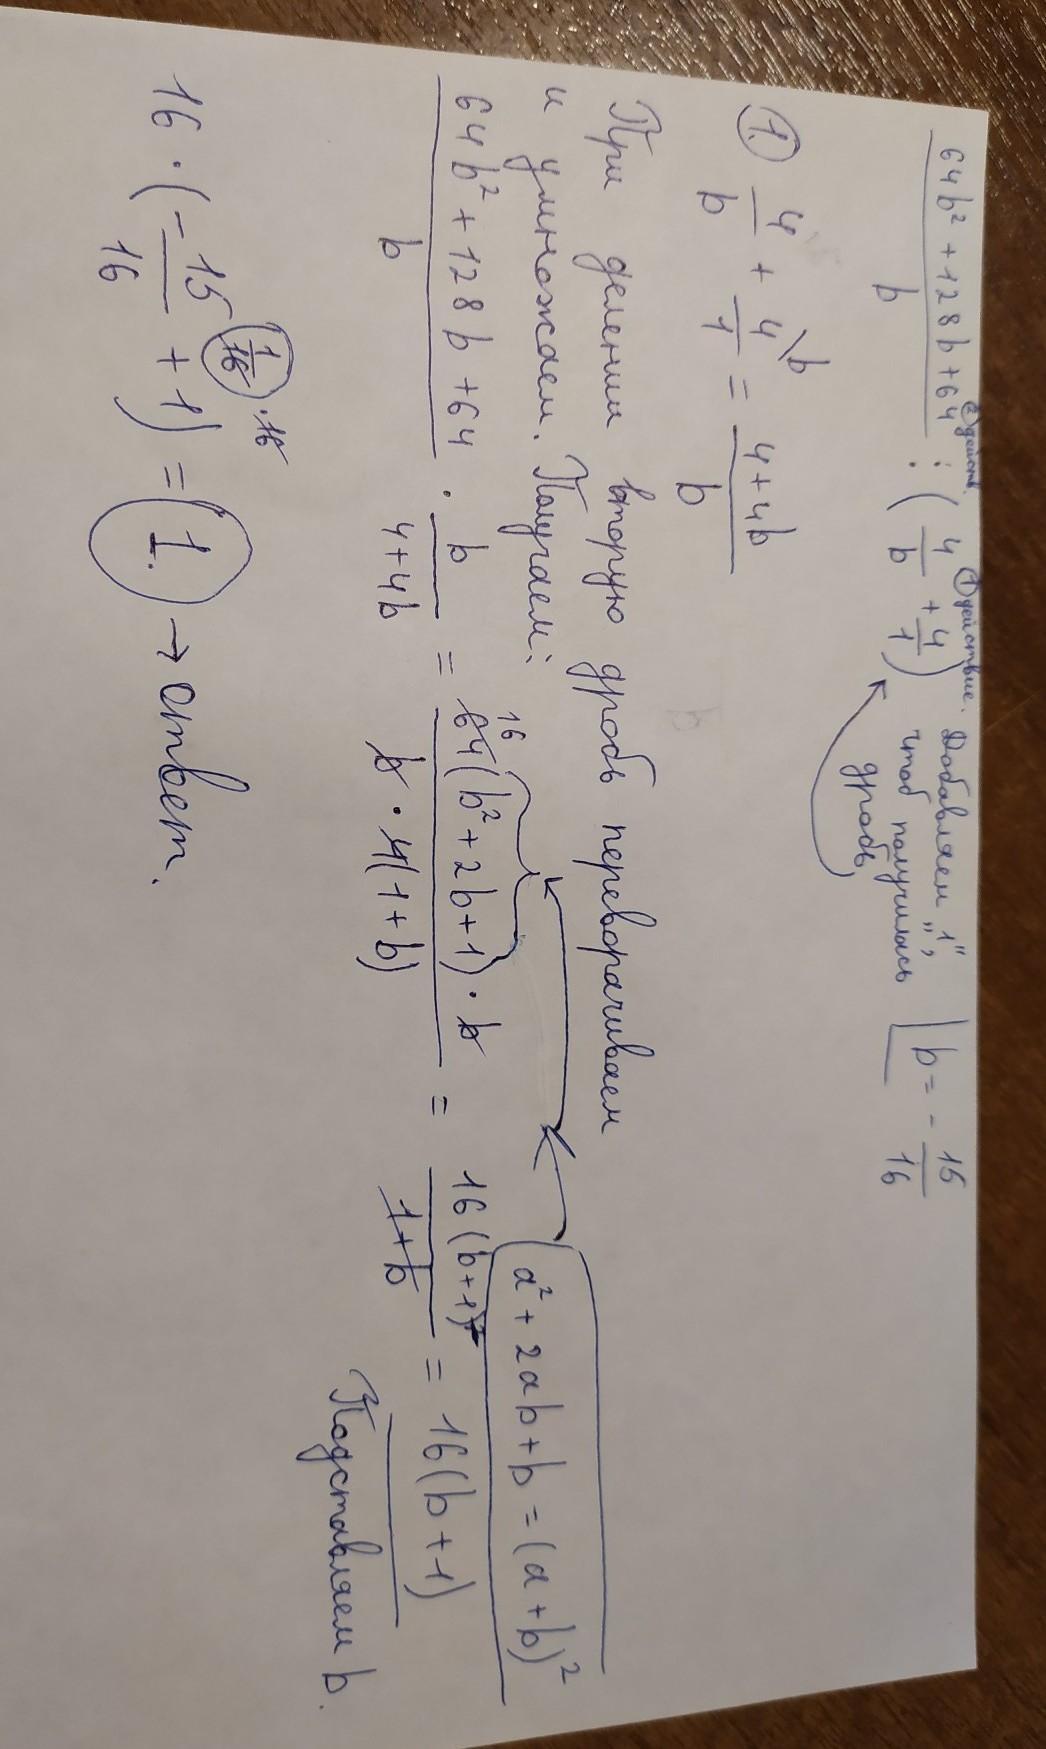 (64b² + 128b + 64)/b : (4/b + 4/1)
② действ. ① действие.
Добавляем "1",
чтоб получилась
дробь
b = - 15/16
① 4/b + 4/1 \b = (4+4b)/b
При делении вторую дробь переворачиваем
и умножаем. Получаем:
a² + 2ab + b = (a + b)²
(64b² + 128b + 64)/b · b/(4+4b) = 64 16 (b² + 2b + 1) · b/(b · 4(1+b)) = 16(b+1)²/(1+b) = 16(b+1)
Подставляем b.
1/16 · 16
16 · (- 15/16 + 1) = 1. → ответ.